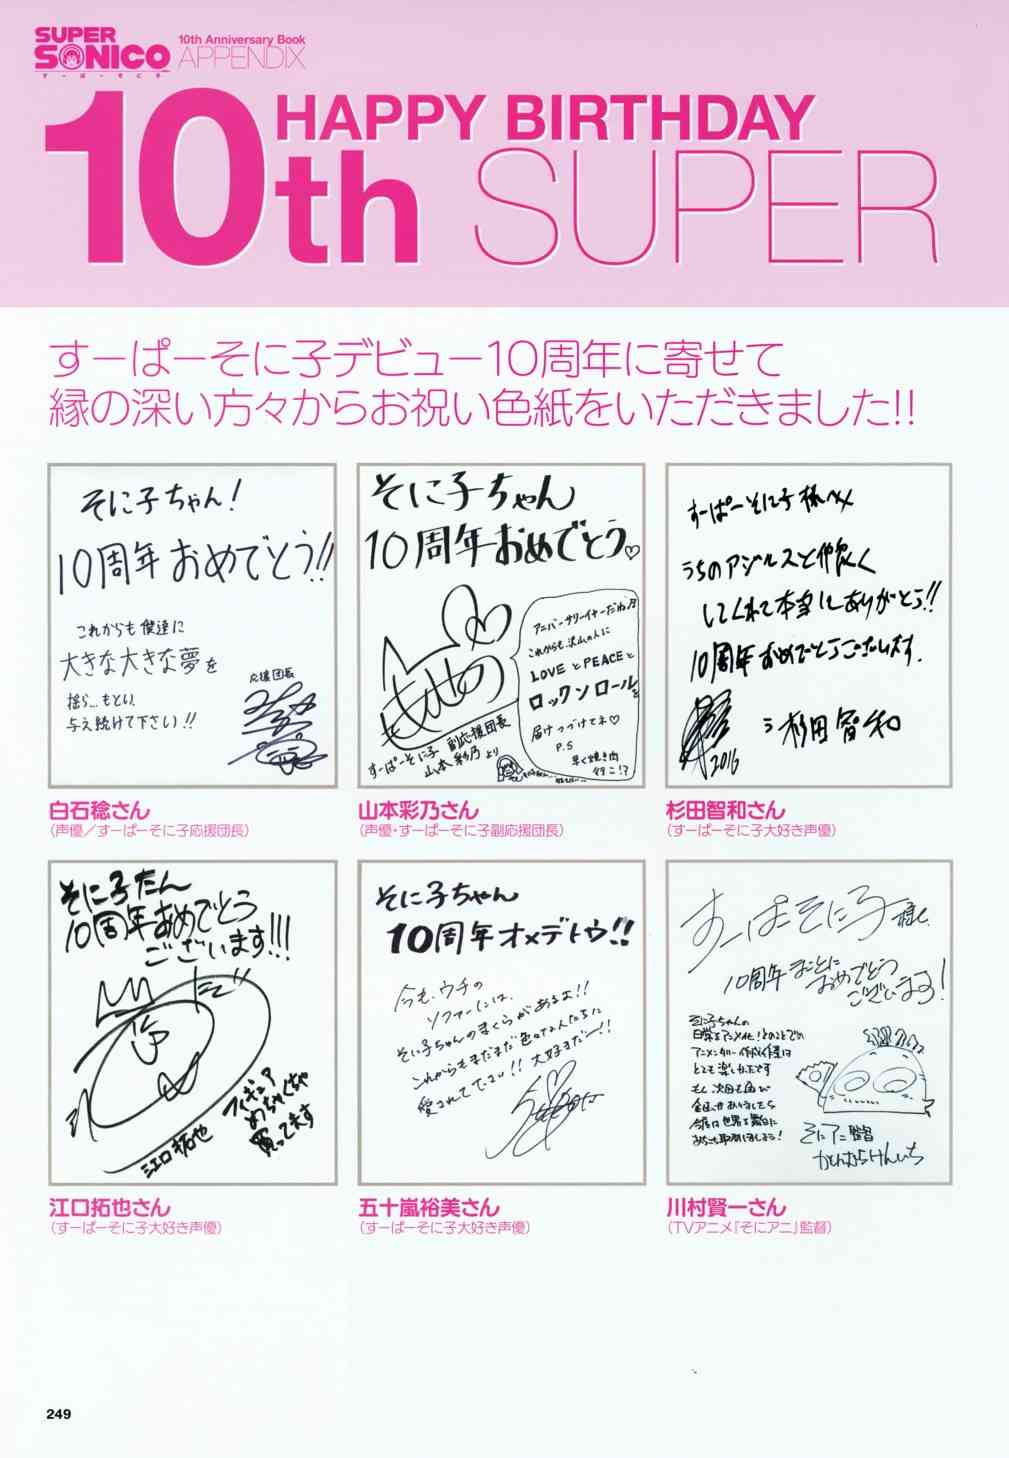 SUPER
SONICO
すーぱーそに子
10th Anniversary Book
APPENDIX
10th
HAPPY BIRTHDAY
SUPER
すーぱーそに子デビュー10周年に寄せて
縁の深い方々からお祝い色紙をいただきました!!
そに子ちゃん!
10周年おめでとう!!
これからも僕達に
大きな大きな夢を
揺ら…もとい、
与え続けて下さい!!
応援団長
白石稔さん
(声優/すーぱーそに子応援団長)
そに子ちゃん
10周年おめでとう♡
アニバーサリーイヤーだね♪
これからも沢山の人に
LOVEとPEACEと
ロックンロールを
届けつづけてネ♡
P.S
早く焼き肉
行こ!?
すーぱーそに子 副応援団長
山本彩乃より
山本彩乃さん
(声優・すーぱーそに子副応援団長)
すーぱーそに子様へ
うちのアジルスと仲良く
してくれて本当にありがとう!!
10周年おめでとうございます.
2016
杉田智和
杉田智和さん
(すーぱーそに子大好き声優)
そに子たん
10周年おめでとう
ございます!!!
フィギュア
めちゃくちゃ
買ってます
江口拓也
江口拓也さん
(すーぱーそに子大好き声優)
そに子ちゃん
10周年オメデトウ!!
今も、ウチの
ソファーには、
そに子ちゃんのまくらがあるよ!!
これからもまだまだ色々な人たちに
愛されて下さい!! 大好きだー!!
五十嵐裕美さん
(すーぱーそに子大好き声優)
すーぱーそに子様
10周年まことに
おめでとう
ございます!
そに子ちゃんの
日常をアニメ化!とのことでの
とても楽しかったです
そにアニ監督
かわむらけんいち
川村賢一さん
(TVアニメ『そにアニ』監督)
249